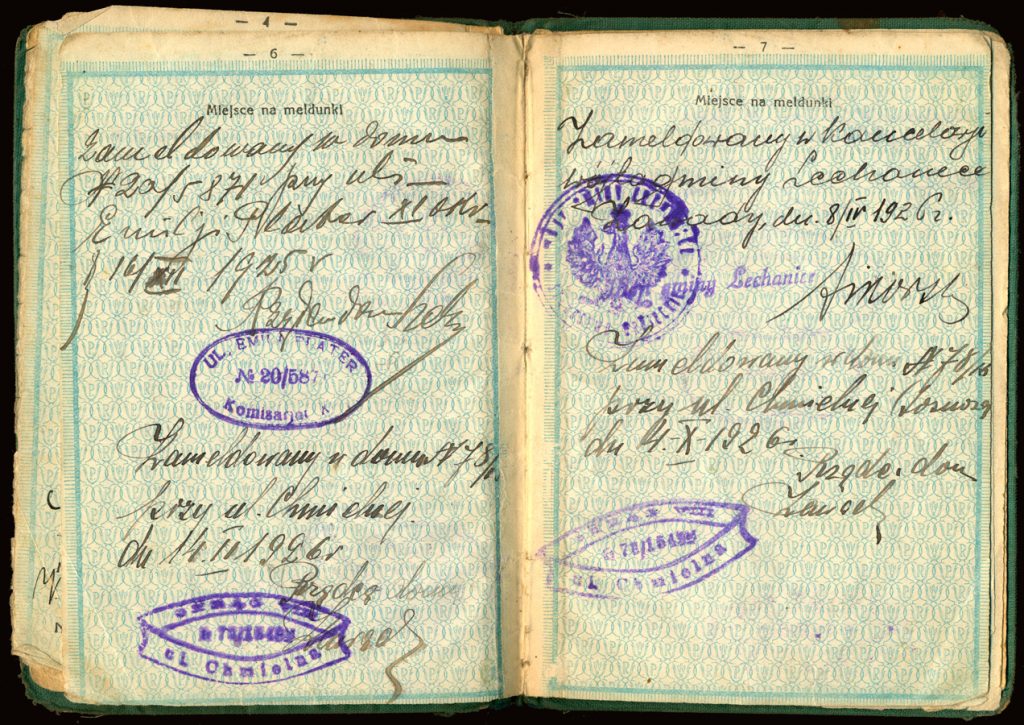 — 4 —
— 6 —
Miejsce na meldunki
Zameldowany w domu
№ 20/5871 przy ulicy
Emilji Plater XI okr.
16/XII 1925 r
Rządca domu
UL. EMILJI PLATER
№ 20/587
Komisarjat X
Zameldowany w domu № 78/
przy ul. Chmielnej
dn 14.IV 1926 r
Rządca domu
ul. Chmielna
— 7 —
Miejsce na meldunki
Zameldowany w Kancelarji
gminy Lechanice
Zawady, dn. 8/IV 1926 r.
gminy Lechanice
Zameldowany w domu № 78/
przy ul. Chmielnej
dn 4.X 1926 r
Rządc. dom
ul. Chmielna